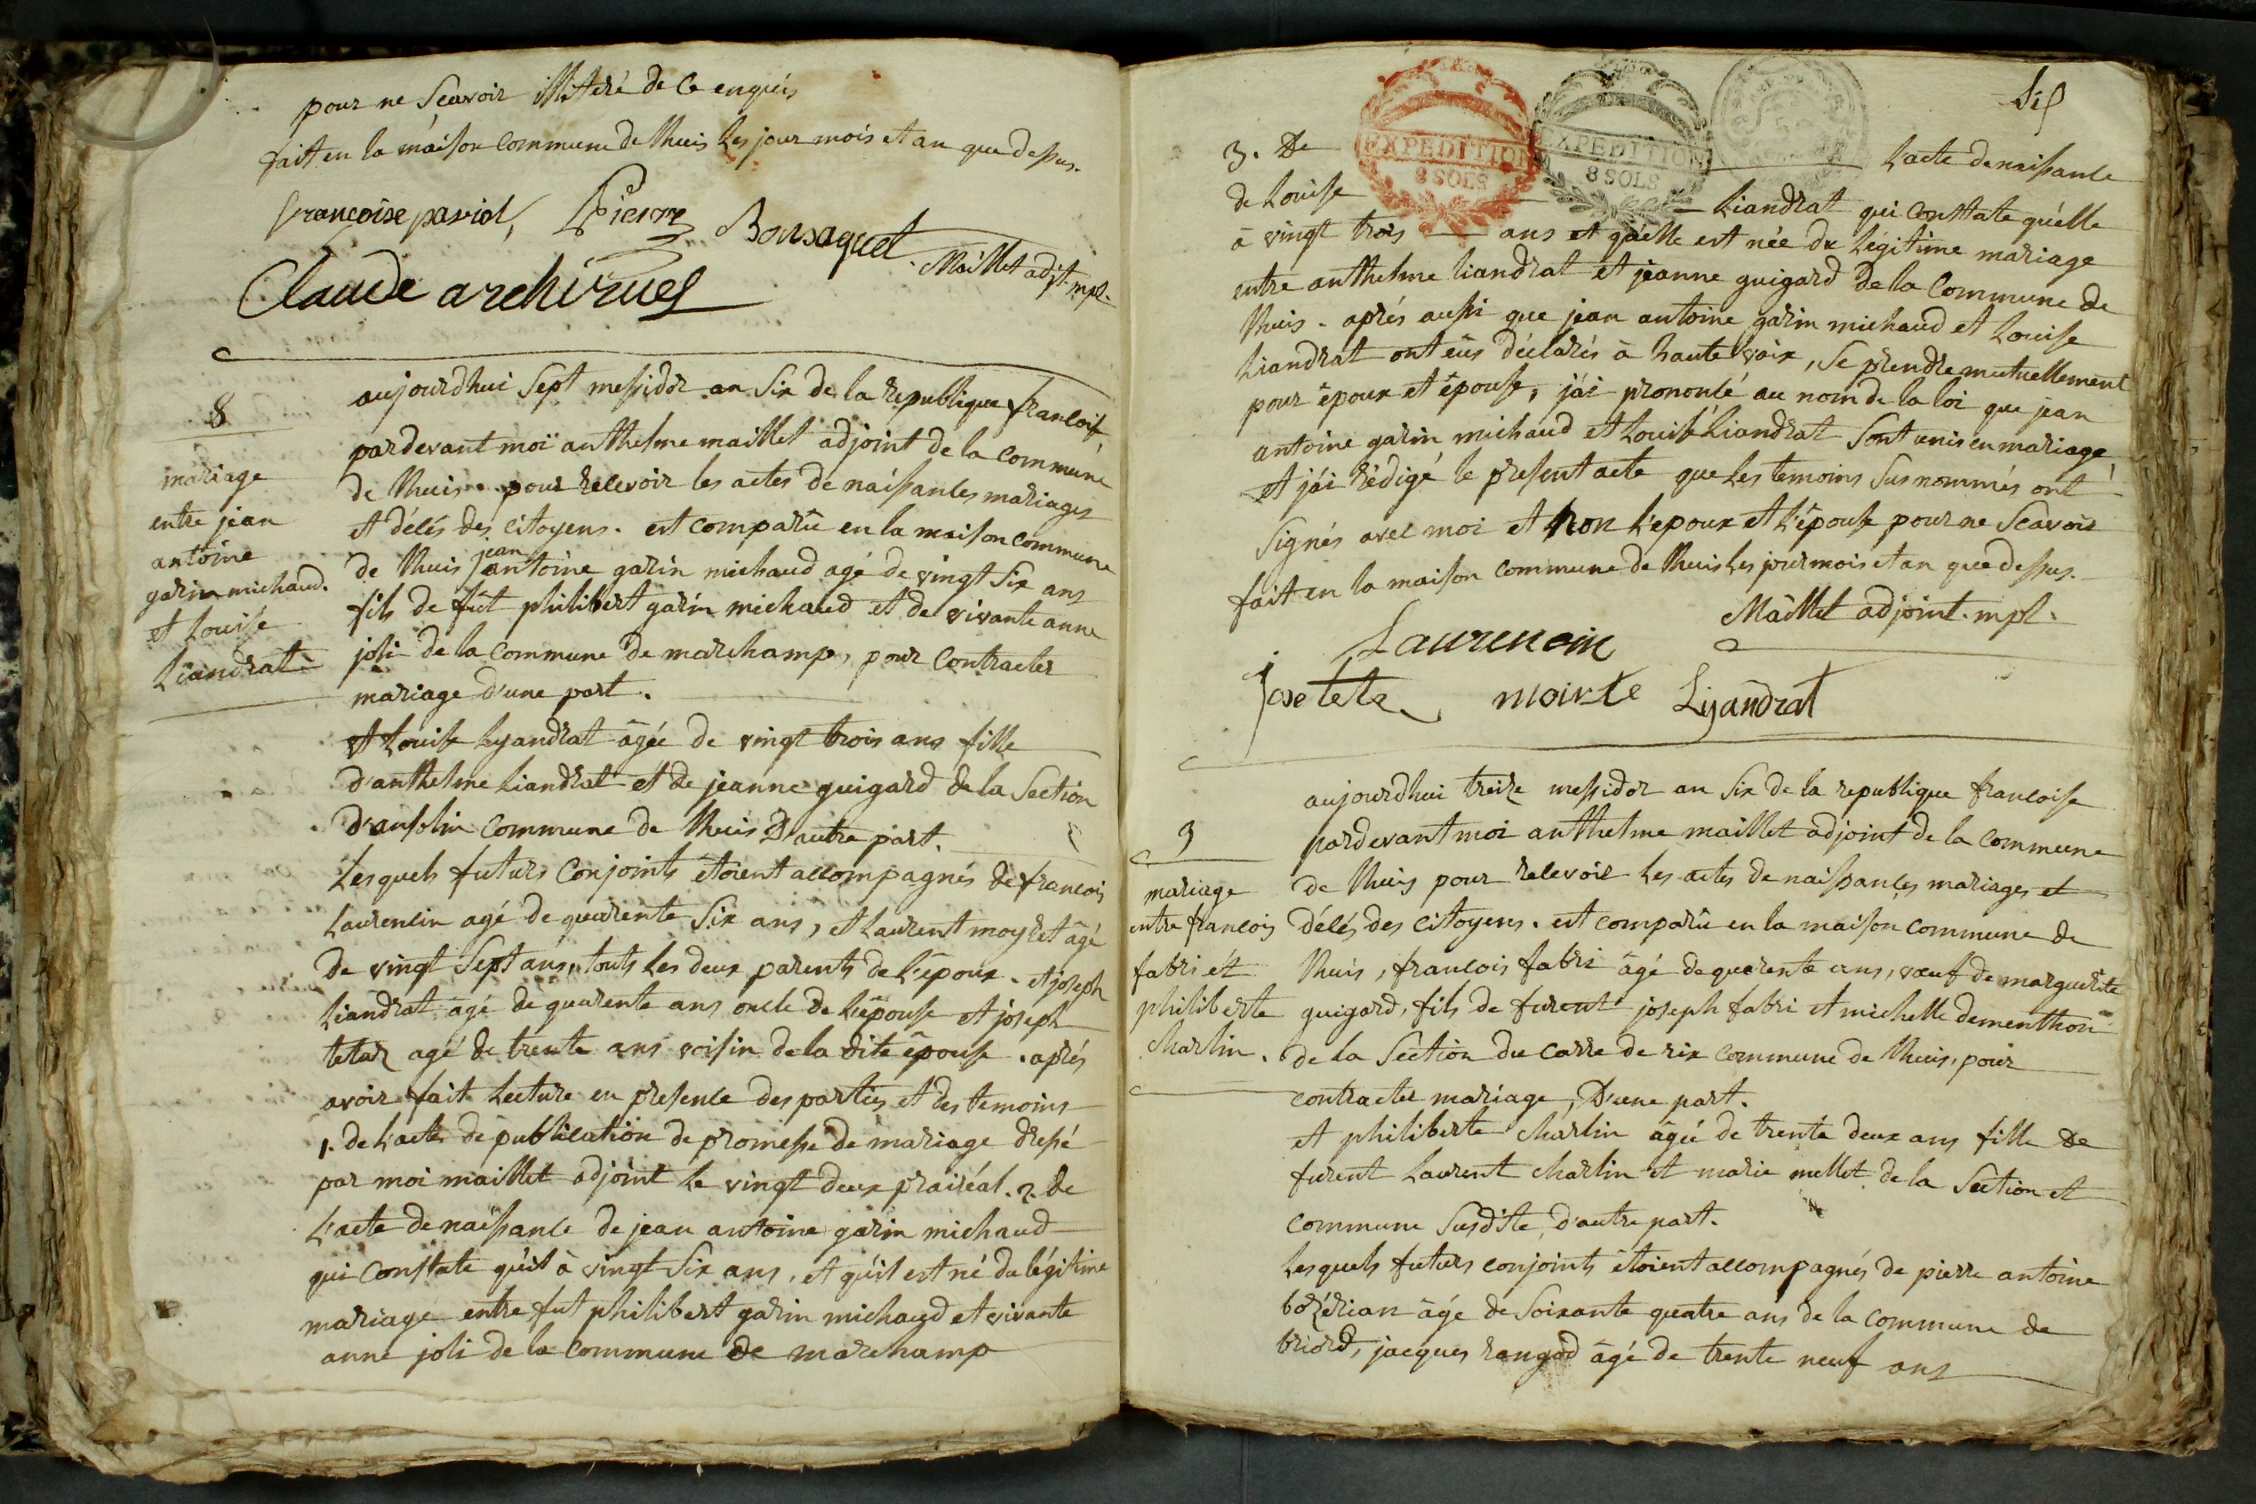 pour ne Scavoir illiteré de ce enquis
fait en la maison commune de lhuis les jour mois et an que dessus.
francoise paviol, Pierre Bousaquet Maillet adjt mpl.
Claude archiruel
8
mariage
entre jean
antoine
garin michaud.
et Louise
Liandrat
aujourdhui Sept messidor an Six de la republique francoise
pardevant moi anthelme maillet adjoint de la commune
de lhuis pour recevoir les actes de naissances mariages
et décés des citoyens. est comparû en la maison commune
de lhuis jean antoine garin michaud agé de vingt Six ans
fils de fût philibert garin michaud et de vivante anne
joli de la commune de marchamp, pour contracter
mariage d'une part.
et Louise Lyandrat âgée de vingt trois ans fille
d'anthelme Liandrat et de jeanne guigard de la Section
d'ansolin commune de lhuis D'autre part.
Lesquels futurs conjoints étoient accompagnés de francois
Laurencin agé de quarente Six ans, et Laurent moyret âgé
de vingt Sept ans, touts les deux parents de l'époux. et joseph
Liandrat âgé de quarente ans oncle de l'épouse et joseph
tetaz agé de trente ans voisin de la dite épouse. aprés
avoir fait lecture en presence des parties et des temoins
1. de l'acte de publication de promesse de mariage dressé
par moi maillet adjoint le vingt deux prairéal. 2. de
l'acte de naissance de jean antoine garin michaud
qui constate qu'il à vingt Six ans, et qu'il est né du légitime
mariage entre fut philibert garin michaud et vivante
anne joli de la commune de marchamp
Six
EXPEDITION
8 SOLS
EXPEDITION
8 SOLS
3. De l'acte de naissance
de Louise Liandrat qui constate qu'elle
à vingt trois ans et qu'elle est née du légitime mariage
entre anthelme liandrat et jeanne guigard de la commune de
lhuis. aprés aussi que jean antoine garin michaud et Louise
Liandrat ont eûs déclarés à haute voix, Se prendre mutuellement
pour époux et épouse, j'ai prononcé au nom de la loi que jean
antoine garin michaud et Louise Liandrat Sont unis en mariage
et j'ai rédigé le present acte que les temoins Susnommés ont
Signés avec moi et non l'epoux et l'épouse pour ne Scavoir
fait en la maison commune de lhuis les jour mois et an que dessus.
Maillet adjoint. mpl.
Laurencin
jose teta moirte Lyandrat
9
mariage
entre francois
fabri et
philiberte
Charlin.
aujourdhui treize messidor an Six de la republique francoise
pardevant moi anthelme maillet adjoint de la commune
de lhuis pour recevoir les actes de naissances mariages et
décés des citoyens. est comparû en la maison commune de
lhuis, francois fabri âgé de quarente ans, vœuf de marguerite
guigard, fils de furent joseph fabri et michelle dementhon
de la Section du carre de rix commune de lhuis, pour
contracter mariage, D'une part.
et philiberte Charlin âgée de trente deux ans fille de
furent Laurent Charlin et marie mellet de la Section et
commune Susdite, d'autre part.
Lesquels futurs conjoints étoient accompagnés de pierre antoine
bozérian âgé de Soixante quatre ans de la commune de
briord, jacques rangod âgé de trente neuf ans